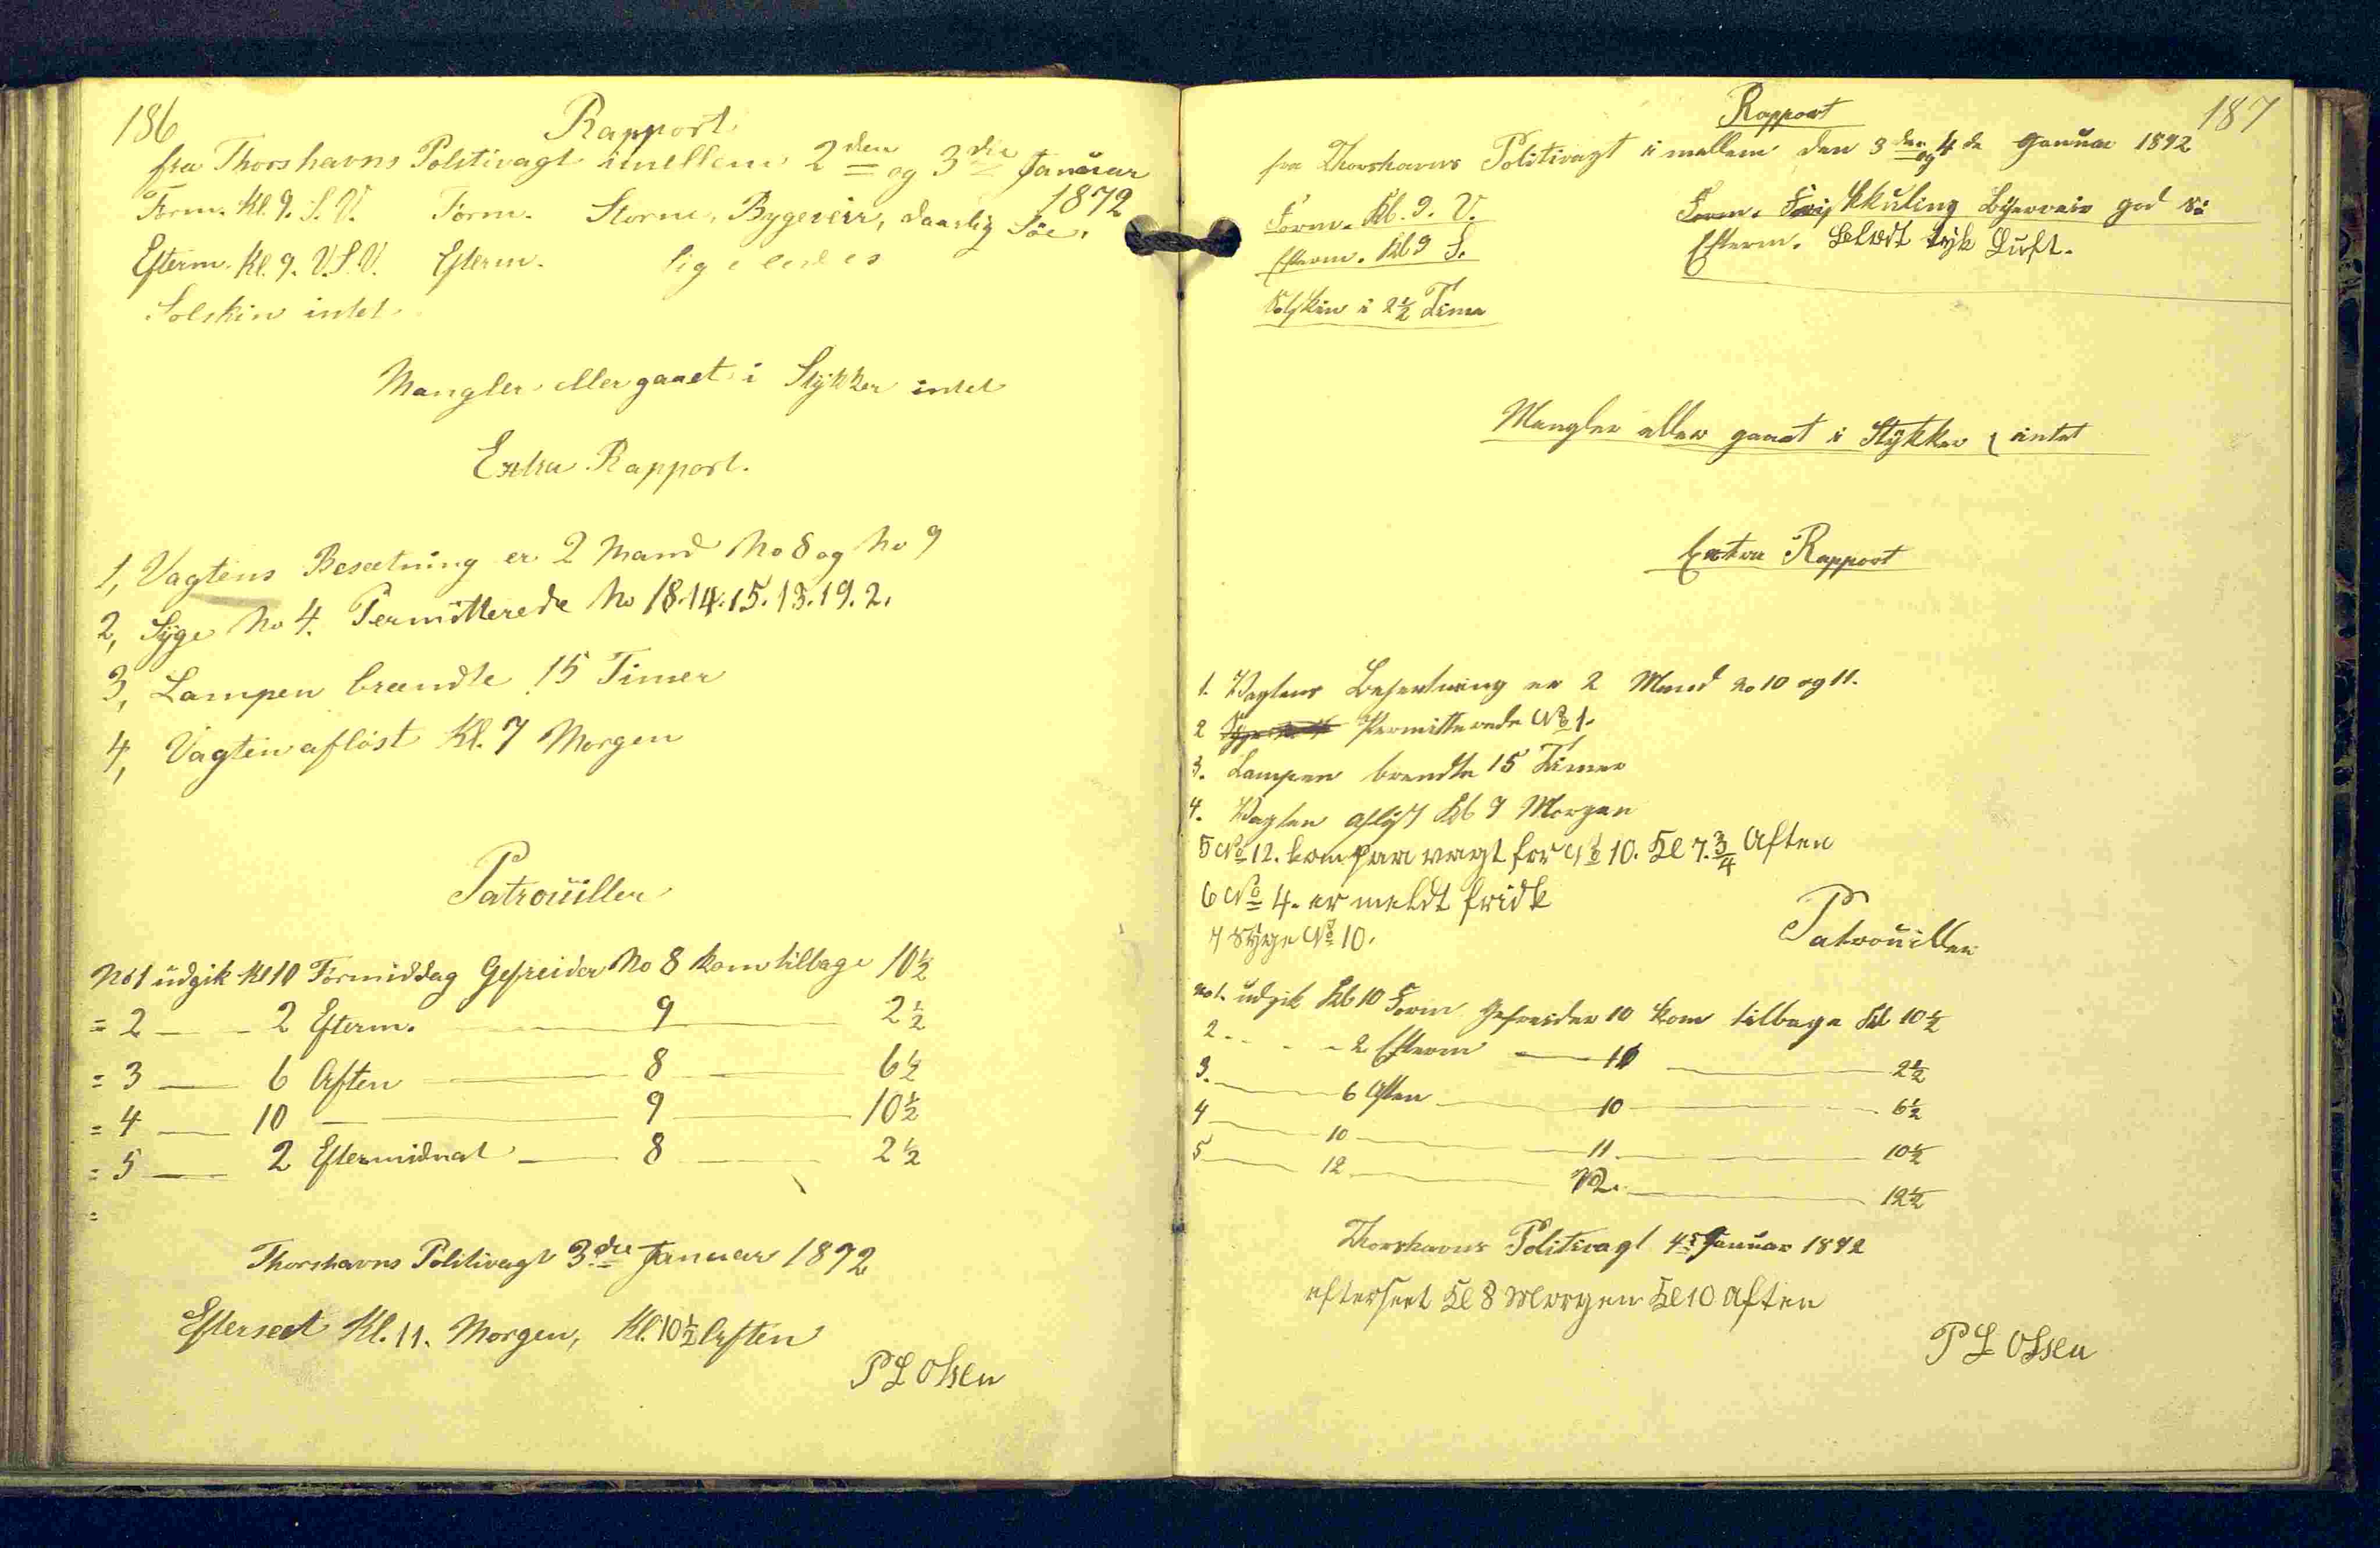 186
Rapport
fra Thorshavns Politivagt imellem 2den og 3die Januar
1872
Form. Kl. 9. S. V. Form. Storm, Bygeveir, daarlig Söe.
Efterm. Kl. 9. V. S. V. Efterm. ligeledes
Solskin intet
Mangler eller gaaet i Stÿkker intet
Extra Rapport.
1, Vagtens Besætning er 2 Mand No 8 og No 9
2, Sÿge No 4. Permitterede No 18.14.15.13.19.2.
3, Lampen brændte 15 Timer
4, Vagten aflöst Kl. 7 Morgen
Patrouiller
No 1 udgik Kl 10 Formiddag Gefreider No 8 kom tilbage 10½
= 2 — - 2 Efterm. — 9 — 2½
= 3 — 6 Aften — 8 — 6½
= 4 — 10 — 9 — 10½
= 5 — 2 Eftermidnat — 8 — 2½
=
Thorshavns Politivagt 3die Januar 1872
Efterseet Kl. 11. Morgen, Kl. 10½ Aften
P L Olsen
187
Rapport
fra Thorshavns Politivagt imellem den 3den og 4de Januar 1872
Form. Kl. 9. V. Form. Frisk Kuling Bÿgeveir god Sö
Efterm. Kl 9 S. Efterm. tyk Luft.
Solskin i 2½ Time
Mangler eller gaaet i Stÿkker intet
Extra Rapport
1. Vagtens Besætning er 2 Mand No 10 og 11.
2 Permitterede No 1.
3. Lampen brendte 15 Timer
4. Vagten aflöst Kl 7 Morgen
5 No 12. kom paa vagt for No 10. Kl 7.¾ Aften
6 No 4. er meldt frisk
7 Syge No 10.
Patrouiller
No 1. udgik Kl 10 Form Gefreider 10 kom tilbage Kl 10½
2 - - - 2 Efterm — 11 — 2½
3. — 6 Aften — 10 — 6½
4 — 10 — 11 — 10½
5 — 12 — 12. — 12½
Thorshavns Politivagt 4de Januar 1872
efterseet Kl 8 Morgen Kl 10 Aften
P L Olsen